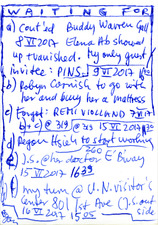 WAITING FOR
a) Cont'ed Buddy Warren Gall
8 VI 2017 Elena Ab showed
up + vanished. My only guest
invitee: PINS 9 VI 2017
b) Robyn Cornish to go with
her and buy her a mattress
c) Forgot: REMI VIOLLAND 7 VI
b) + c) @ 319 @ 
d) Pegoun Hsieh to start working
e) J.S. @ her doctor E' Bway
15 VI 2017 1639
f) my turn @ U.N. visitor's
center 801 1st Ave (J.S. out
16 VI 2017 1505 side